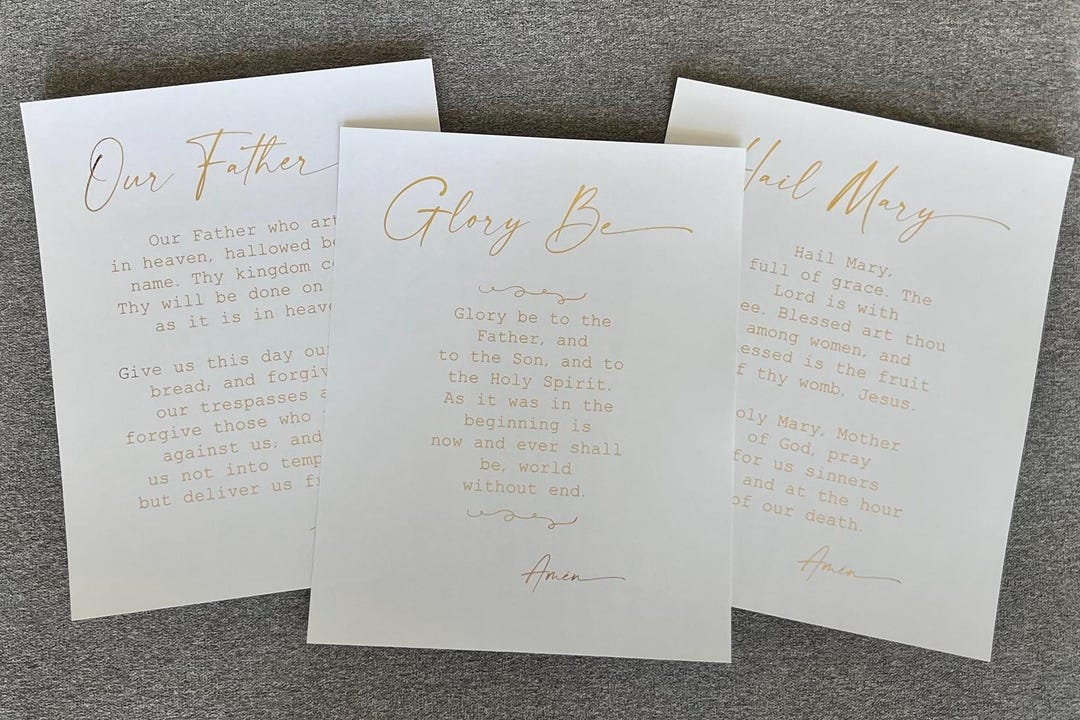 Our Father
Our Father who art
in heaven, hallowed
name. Thy kingdom
Thy will be done on
as it is in
Give us this day
bread, and
our trespasses
forgive those who
against us; and
us not into
but deliver us
Glory Be
Glory be to the
Father, and
to the Son, and to
the Holy Spirit.
As it was in the
beginning is
now and ever shall
be, world
without end.
Amen
Hail Mary
Hail Mary,
full of grace. The
Lord is with
Blessed art thou
among women, and
is the fruit
thy womb, Jesus.
Mary, Mother
of God, pray
for us sinners
and at the hour
of our death.
Amen